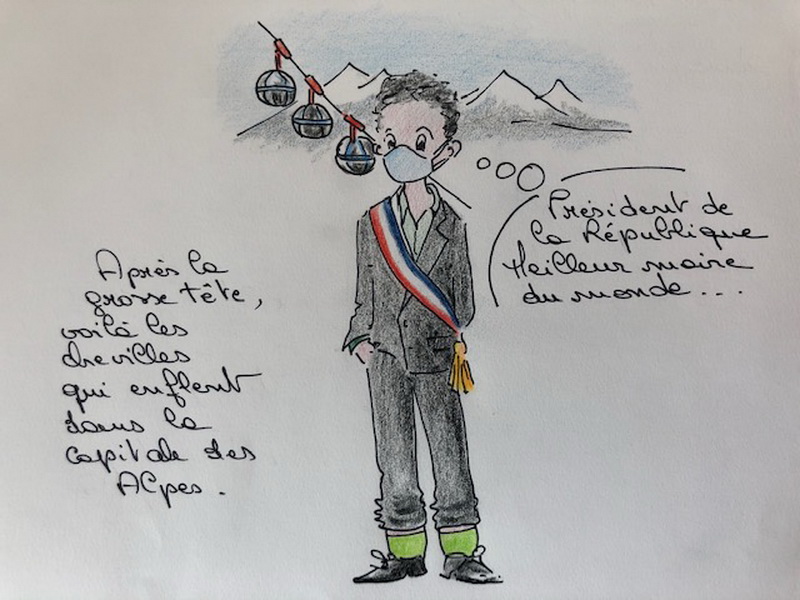 Après la
grosse tête,
voilà les
chevilles
qui enflent
dans la
capitale des
Alpes.
Président de
la République
Meilleur maire
du monde...